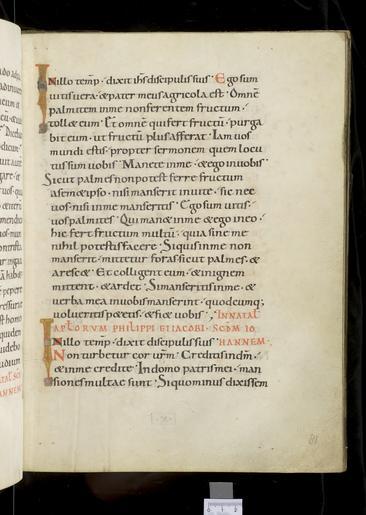 Inillo temp̄ · dixit ih̄s discipulis suis · Ego sum
uitis uera · & pater meus agricola est · Omnē
palmitem in me non ferentem fructum ·
toll& eum · Et omnē qui fert fructū · purga
bit eum · ut fructū plus afferat · Iam uos
mundi estis · propter sermonem quem locu
tus sum uobis · Manete in me · & ego in uobis ·
Sicut palmes non potest ferre fructum
a sem&ipso · nisi manserit in uite · sic nec
uos · nisi in me manseritis · Ego sum uitis ·
uos palmites · Qui man& in me & ego in eo ·
hic fert fructum multū · quia sine me
nihil potestis facere · Si quis in me non
manserit · mittetur foras sicut palmes · &
aresc& · Et colligent eum · & in ignem
mittent · & ard& · Si manseritis in me · &
uerba mea in uobis manserint · quodcumq;
uolueritis p&etis · & fi& uobis · IN NATAL
APLORUM PHILIPPI ET IACOBI · SCDM IO
Inillo temp̄ · dixit discipulis suis · HANNEM ·
Non turbetur cor ur̄m · Creditis in dm̄ ·
& in me credite · In domo patris mei · man
siones multae sunt · Si quo minus dixissem